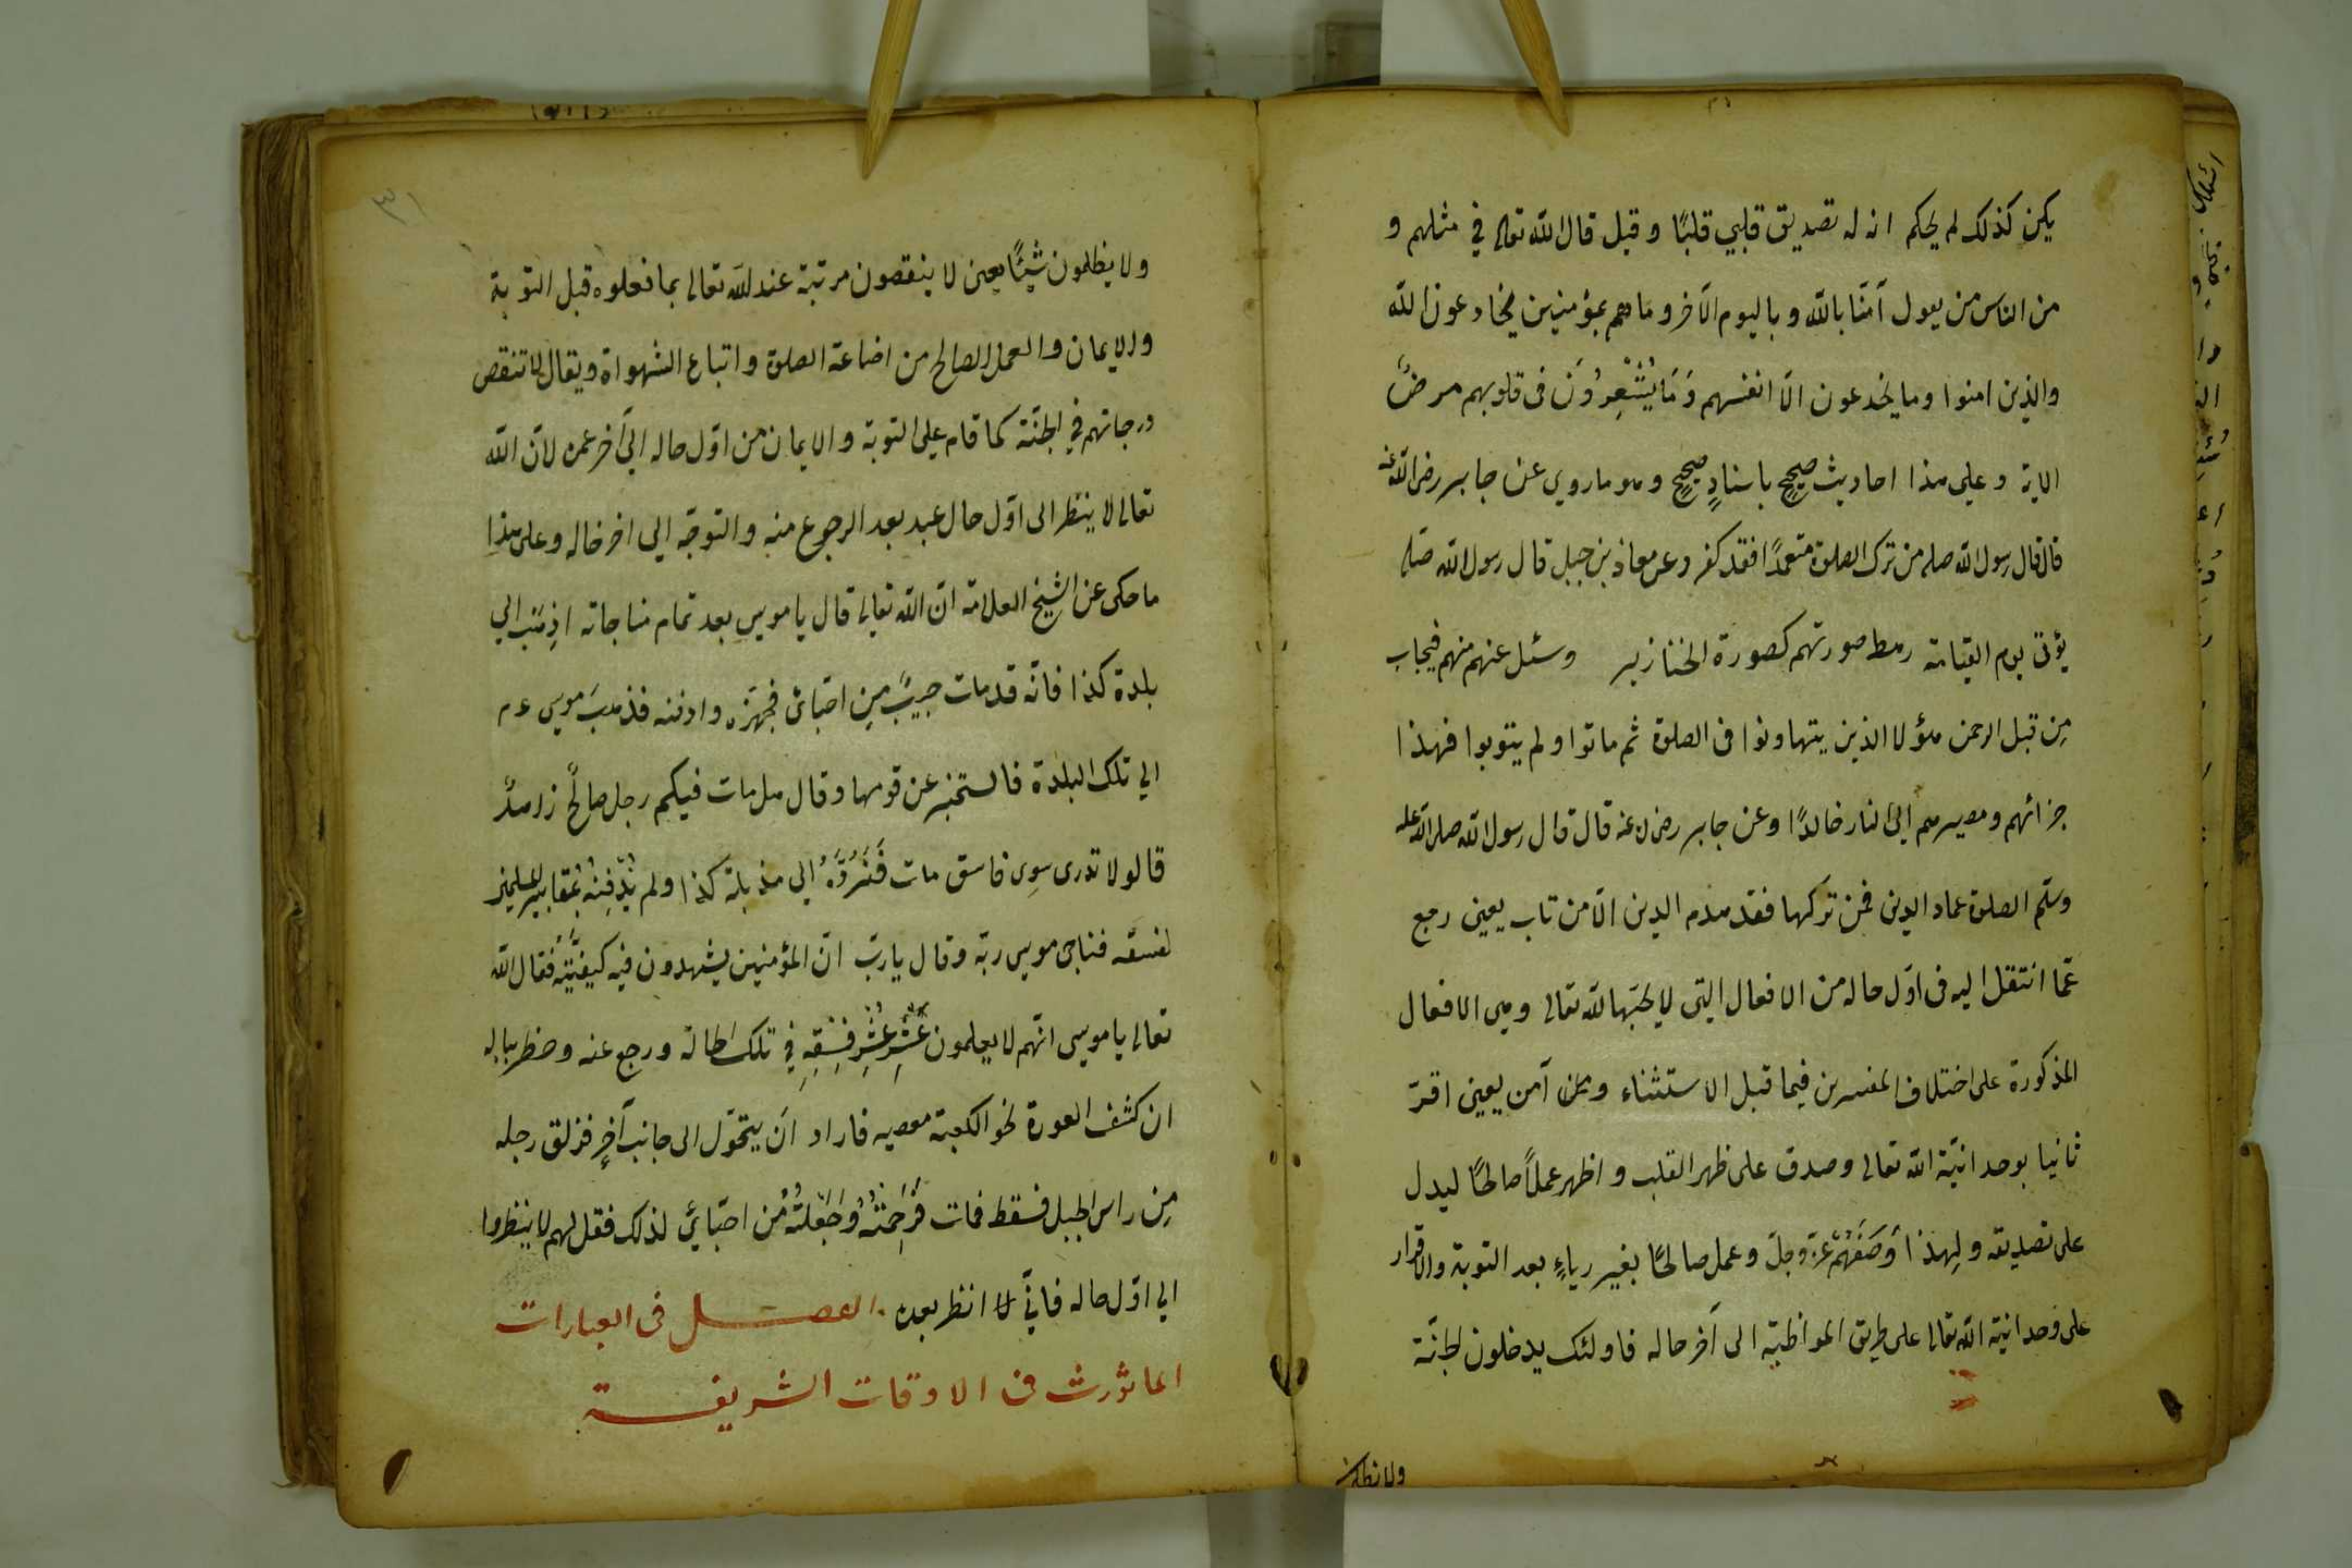 يكن كذلك لم يحكم انه له تصديق قلبي قلبًا وقيل قال الله تعالى في مثلهم و
من الناس من يعول آمنّا بالله وباليوم الآخر وما هم بمؤمنين يخادعون الله
والذين امنوا وما يخدعون الّا انفسهم وَمَا يَشْعِرُوَنَ فى قلوبهم مرضٌ
الاية وعلى هذا احاديث صحيحٍ باسنادٍ صحيحٍ وهو ما روي عن جابر رضى الله عنه
قال قال رسول الله صلم من ترك الصلوة متعمدًا فقد كفر وعن معاذ بن جبل قال رسول الله صلم
يؤتى يوم القيامة رهط صورتهم كصورة الخنازير وسئل عنهم منهم فيجاب
مِن قبل الرحمن هؤلا الذين يتهاونوا فى الصلوة ثم ماتوا ولم يتوبوا فهذا
جزائهم ومصيرهم الى النار خالدًا وعن جابر رضى لله عنه قال قال رسول الله صلى الله عله
وسلّم الصلوة عماد الدين فمن تركها فقد هدم الدين الّا من تاب يعنى رجع
عمّا انتقل اليه فى اوّل حاله من الافعال التى لا يحبّها لله تعالى وهى الافعال
المذكورة على اختلاف المفسرين فيما قبل الاستثناء ومن آمن يعنى اقرّ
ثانيا بوحدانيّة الله تعالى وصدق على ظهر القلب واظهر عملاً صالحًا ليدل
على تصديقه ولهذا وَصَفَهُمْ عزّ وجلّ وعمل صالحًا بغير رياءٍ بعد التوبة والاقرار
على وحدانيّة الله تعالى على طريق المواظبة الى آخر حاله فاولئك يدخلون الجنّة
ولا يظلمون
٣١
ولا يظلمون شيئًا يعنى لا ينقصون مرتبة عند الله تعالى بما فعلوه قبل التوبة
والايمان والعمل الصالح من اضاعة الصلوة واتباع الشهواة ويقال لا تنقص
درجاتهم في الجنّة كما قام على التوبة والايمان من اوّل حاله الى آخر عمره لانّ الله
تعالى لا ينظر الى اوّل حال عبد بعد الرجوع منه والتوجّه الي اخر حاله وعلى هذا
ما حكى عن الشيخ العلامة انّ الله تعالى قال يا موسى بعد تمام مناجاته اذهَب الي
بلدة كذا فانّه قد مات حبيبٌ مِن احبّائى فجهّزه وادفنه فذهبَ موسى عم
الي تلك البلدة فاستخبر عن قومها وقال هل مات فيكم رجل صالحٌ زاهدٌ
قالو لا تدرى سوى فاسق مات فَنَرُدَّهُ الي مذبلة كذا ولم نُدْفِنْهُ بمقابير المسلمين
لفسقه فناجى موسى ربّه وقال يا ربّ انّ المؤمنين يشهدون فيه كيفيّتَهُ فقال الله
تعالى يا موسى انّهم لا يعلمون عُشْرِ عُشْرِ فِسْقِهِ فِي تلك الحالة ورجع عنه وخطر بباله
ان كشف العورة نحو الكعبة معصيه فاراد اَن يتحوّل الى جانب آخرٍ فزلق رجله
مِن راس الجبل فسقط فمات فَرَحِمْتُهُ وَجَعَلْتُهُ مُن احبّائي لذلك فقل لهم لا ينظروا
الي اوّل حاله فانّي لا انظر بعده. الفصل فى العبارات
الماثورث فى الاوقات الشريفة